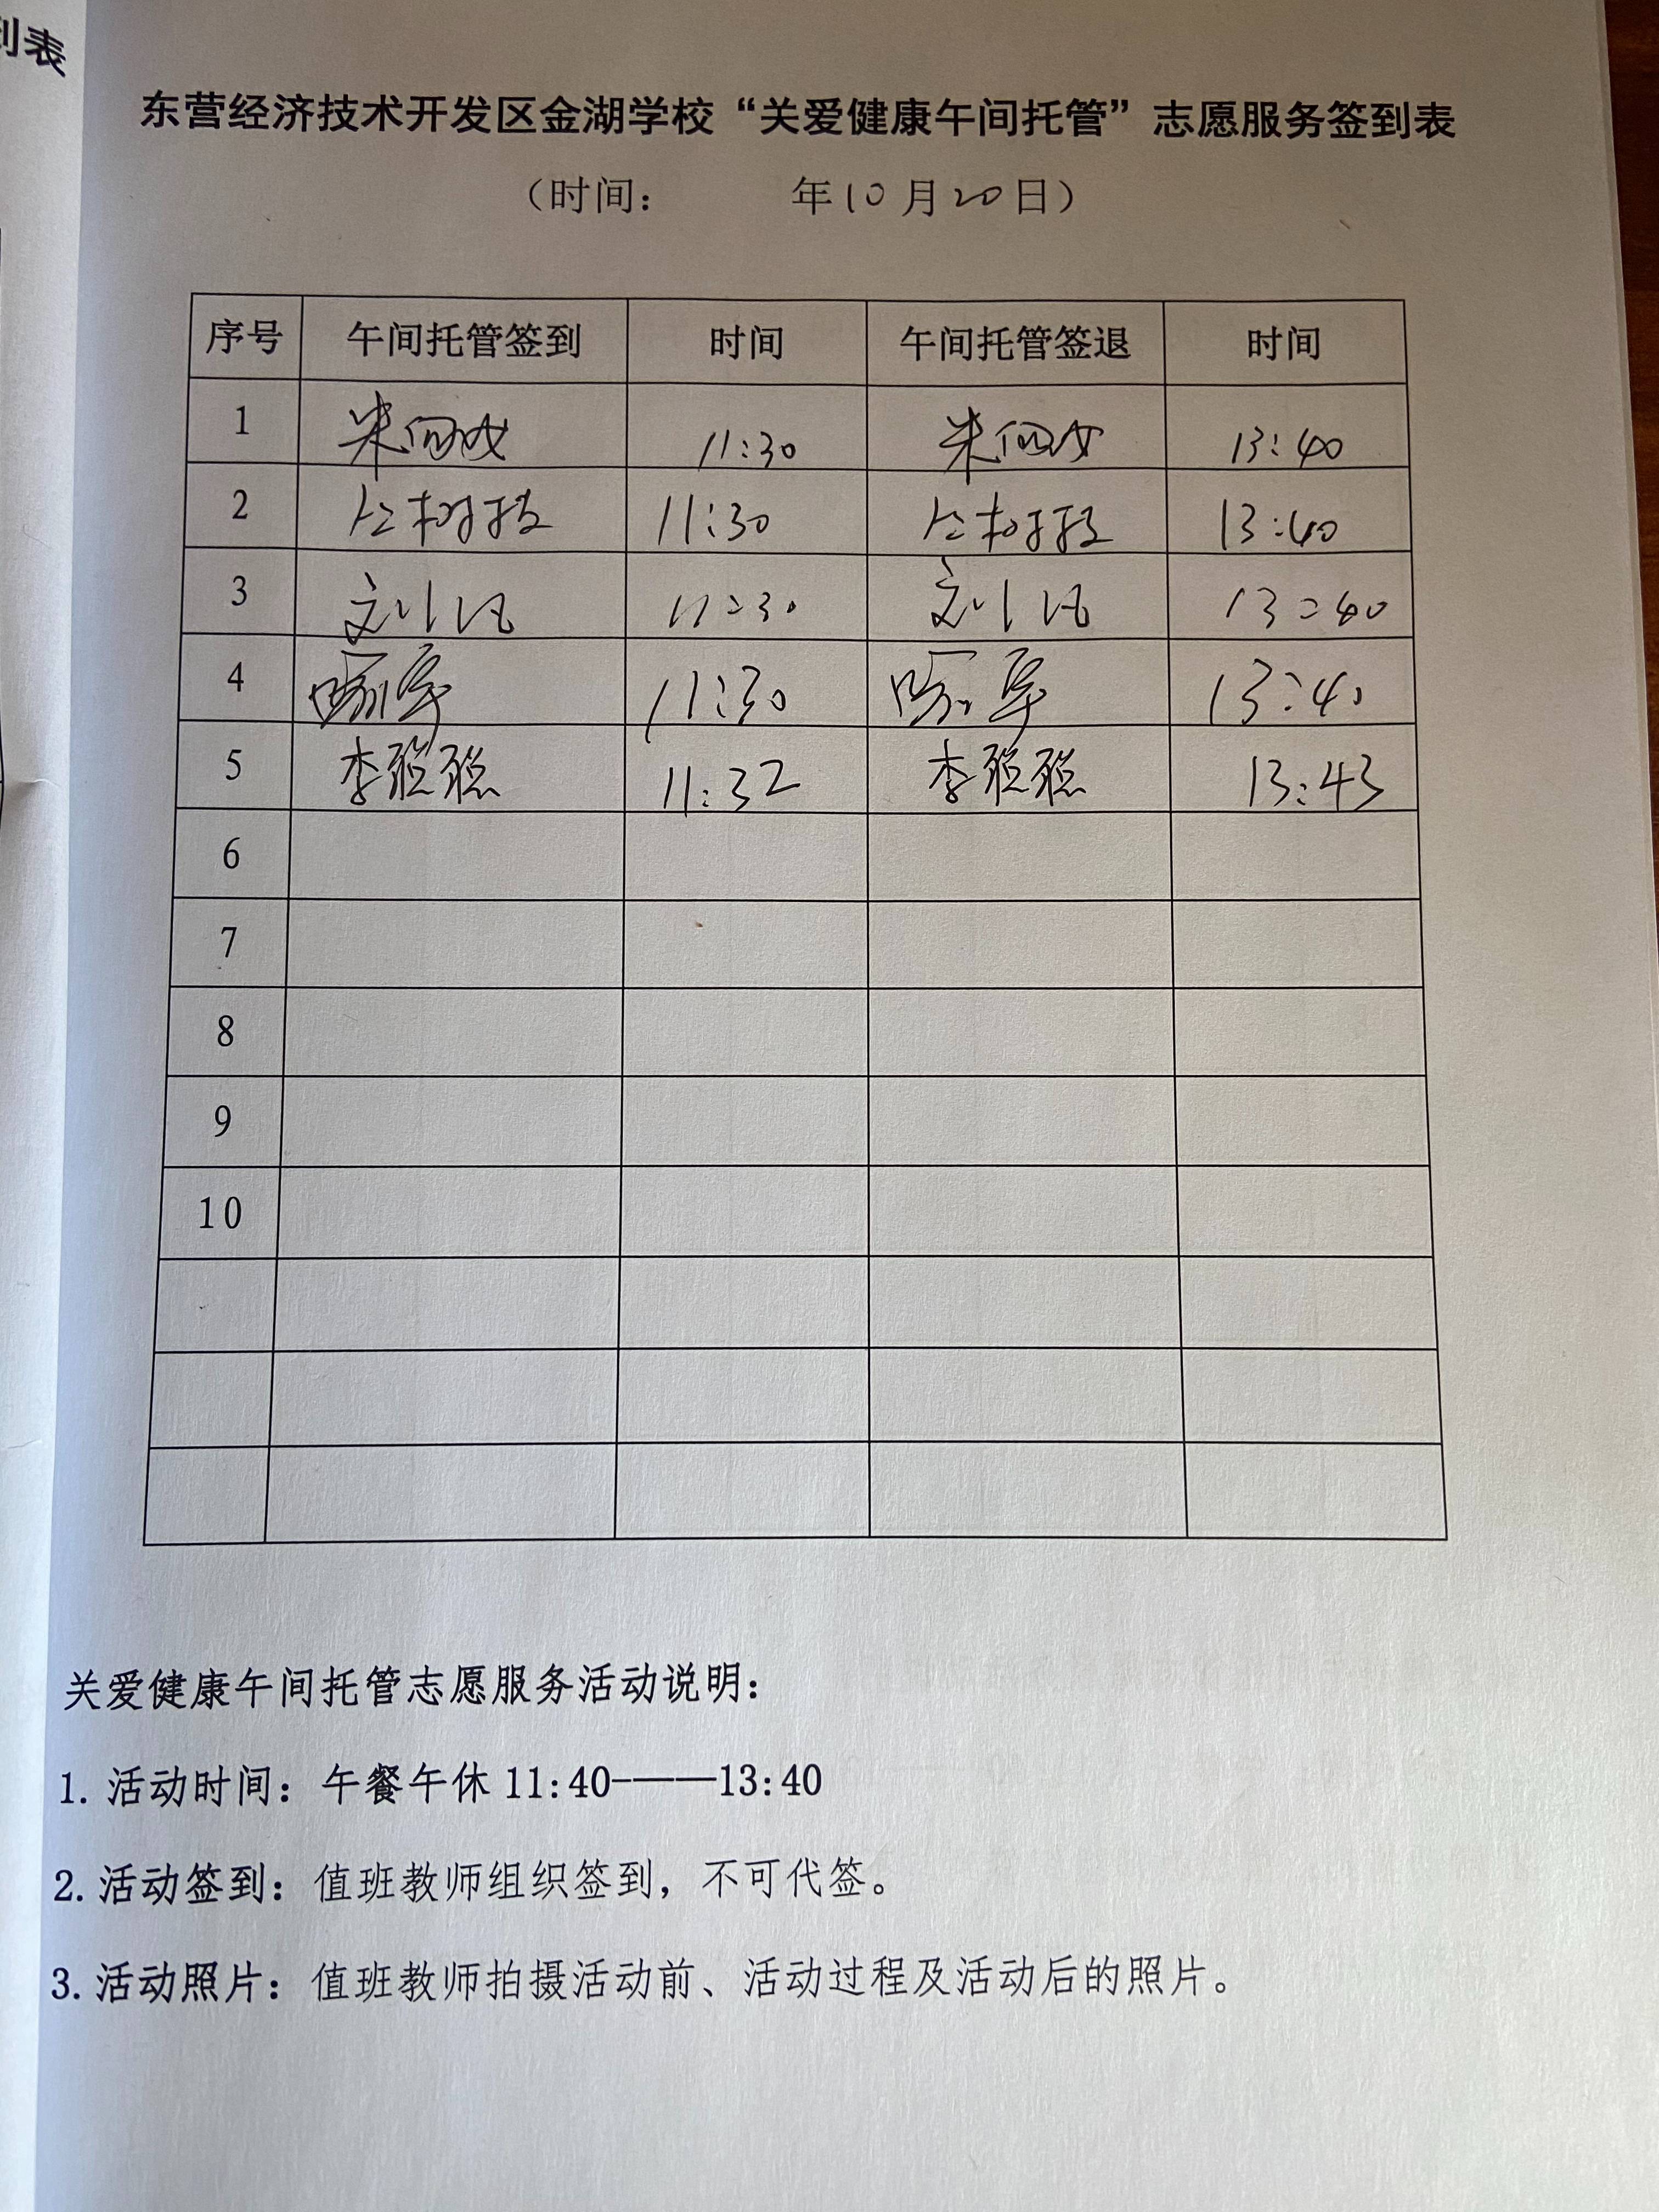 到表
东营经济技术开发区金湖学校“关爱健康午间托管”志愿服务签到表
（时间： 年10月20日）
序号 午间托管签到 时间 午间托管签退 时间
1 11:30 13:40
2 11:30 13:40
3 11:30 13:40
4 11:30 13:40
5 李聪聪 11:32 李聪聪 13:43
6
7
8
9
10
关爱健康午间托管志愿服务活动说明：
1. 活动时间：午餐午休 11:40-——13:40
2. 活动签到：值班教师组织签到，不可代签。
3. 活动照片：值班教师拍摄活动前、活动过程及活动后的照片。